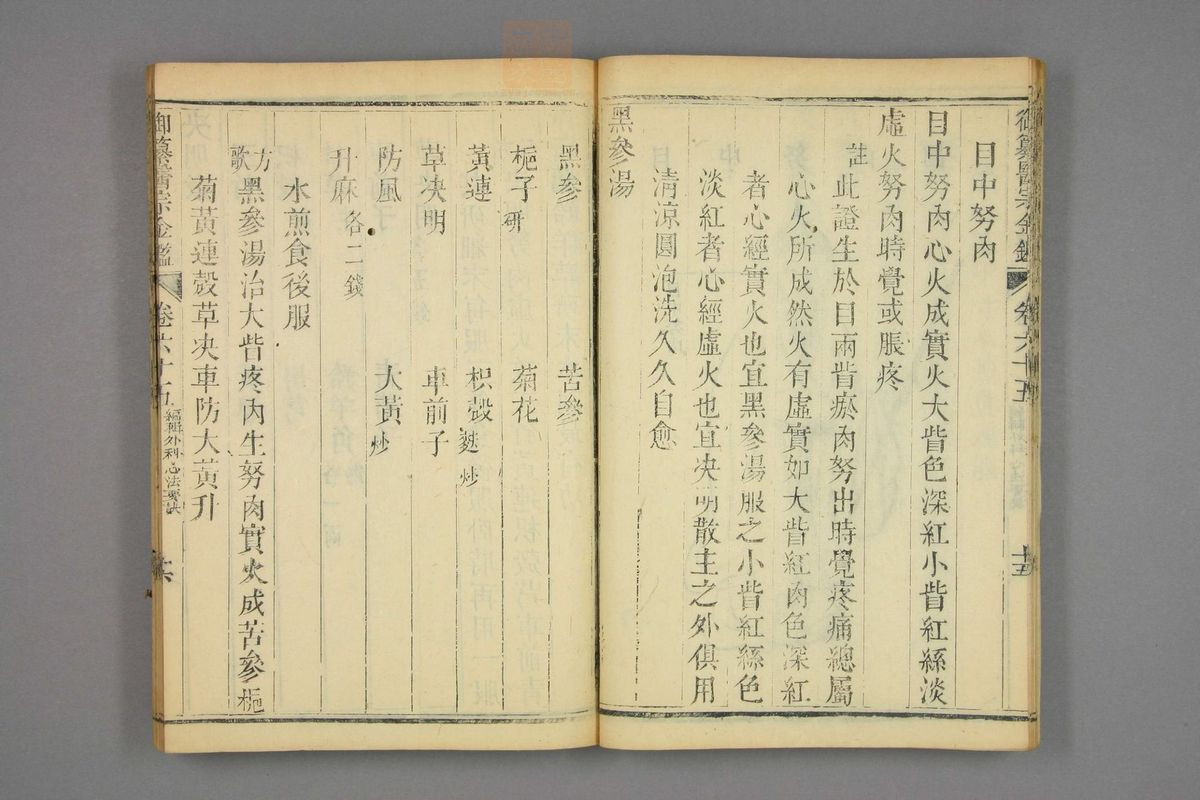 御纂醫宗金鑑 卷六十五 十五
目中努肉
目中努肉心火成實火大眥色深紅小眥紅絲淡
虛火努肉時覺或脹疼
註此證生於目兩眥瘀肉努出時覺疼痛總屬
心火所成然火有虛實如大眥紅肉色深紅
者心經實火也宜黑參湯服之小眥紅絲色
淡紅者心經虛火也宜决明散主之外俱用
清凉圓泡洗久久自愈
黑參湯
黑參 苦參
梔子研 菊花
黃連 枳殼麩炒
草决明 車前子
防風 大黃炒
升麻各二錢
水煎食後服
方歌黑參湯治大眥疼內生努肉實火成苦參梔
菊黃連殼草决車防大黃升
御纂醫宗金鑑 卷六十五 編輯外科心法要訣 十六